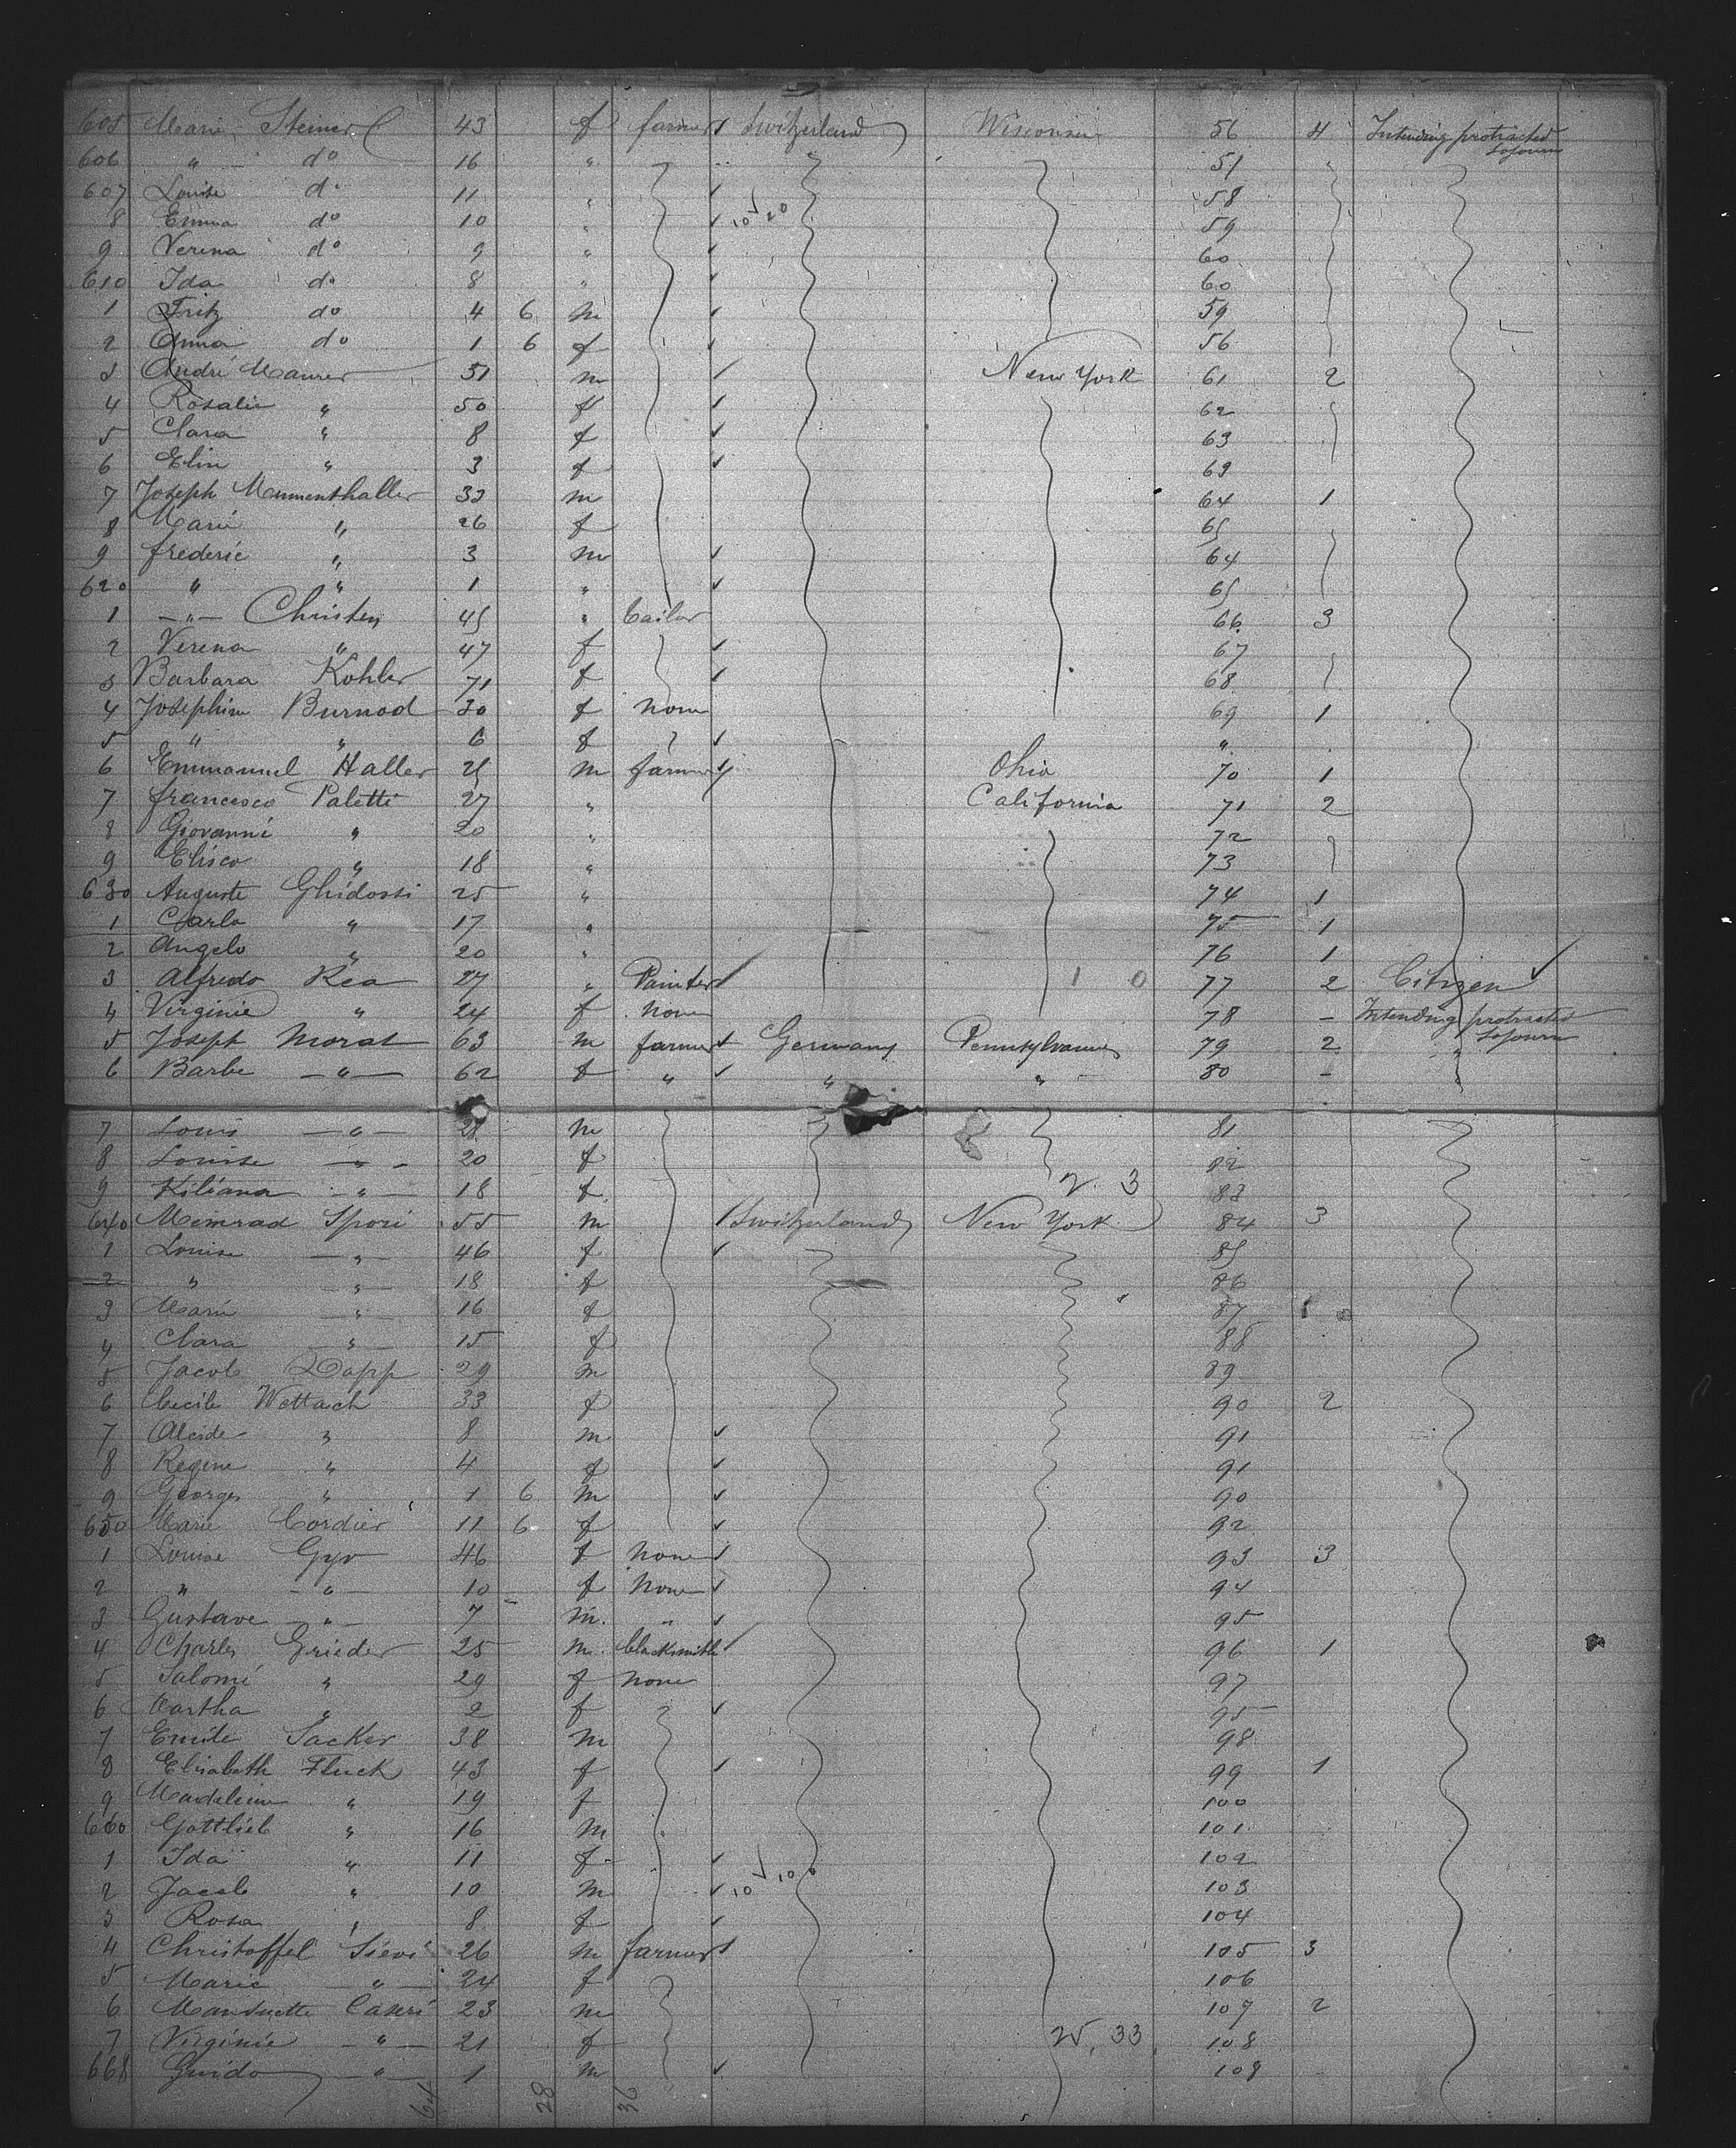 605 Marie Steiner 43 f farmer Switzerland Wisconsin 56 4 Intending protracted sojourn
606 " — do 16 " 51
607 Louise do 11 " 58
8 Emma do 10 " 10 20 59
9 Verena do 9 " 60
610 Ida do 8 " 60
1 Fritz do 4 6 m 59
2 Anna do 1 6 f 56
3 André Maurer 51 m New York 61 2
4 Rosalie " 50 f 62
5 Clara " 8 f 63
6 Elin " 3 f 63
7 Joseph Mumenthaller 33 m 64 1
8 Marie " 26 f 65
9 frederic " 3 m 64
620 " " 1 " 65
1 —"— Christen 45 " tailor 66 3
2 Verena " 47 f 67
3 Barbara Kohler 71 f 68
4 Josephine Burnod 30 f none 69 1
5 " " 6 f "
6 Emmanuel Haller 25 m farmer Ohio 70 1
7 francesco Paletti 27 " California 71 2
8 Giovanni " 20 " 72
9 Elisco " 18 " 73
630 Auguste Ghidossi 25 " 74 1
1 Carlo " 17 " 75 1
2 Angelo " 20 " 76 1
3 Alfredo Rea 27 " Painter 1 0 77 2 Citizen
4 Virginie " 24 f none 78 - Intending protracted sojourn
5 Joseph Morat 63 m farmer Germany Pennsylvania 79 2 "
6 Barbe —"— 62 f " " " 80 - "
7 Louis —"— 28 m 81
8 Louise —"— 20 f 82
9 Kiliana —"— 18 f 2. 3 83
640 Meinrad Spori 55 m Switzerland New York 84 3
1 Louise —"— 46 f 85
2 " —"— 18 f 86
3 Marie —"— 16 f 87
4 Clara —"— 15 f 88
5 Jacob Dapp 29 m 89
6 Cecile Wettach 33 f 90 2
7 Alcide " 8 m 91
8 Regine " 4 f 91
9 Georges " 1 6 m 90
650 Marie Cordier 11 6 f 92
1 Louise Gyr 46 f none 93 3
2 " —"— 10 f none 94
3 Gustave —"— 7 m. " 95
4 Charles Grieder 25 m. blacksmith 96 1
5 Salomé " 29 f none 97
6 Martha " 2 f 95
7 Emile Sacker 38 m 98
8 Elisabeth Fluck 43 f 99 1
9 Madeleine " 19 f 100
660 Gottlieb " 16 m 101
1 Ida " 11 f 102
2 Jacob " 10 m 10 10 103
3 Rosa " 8 f 104
4 Christoffel Sievi 26 m farmer 105 3
5 Marie —"— 24 f 106
6 Mansuette Caseri 23 m 107 2
7 Virginie —"— 21 f 25, 33 108
668 Guido —"— 1 m 108
64 28 36